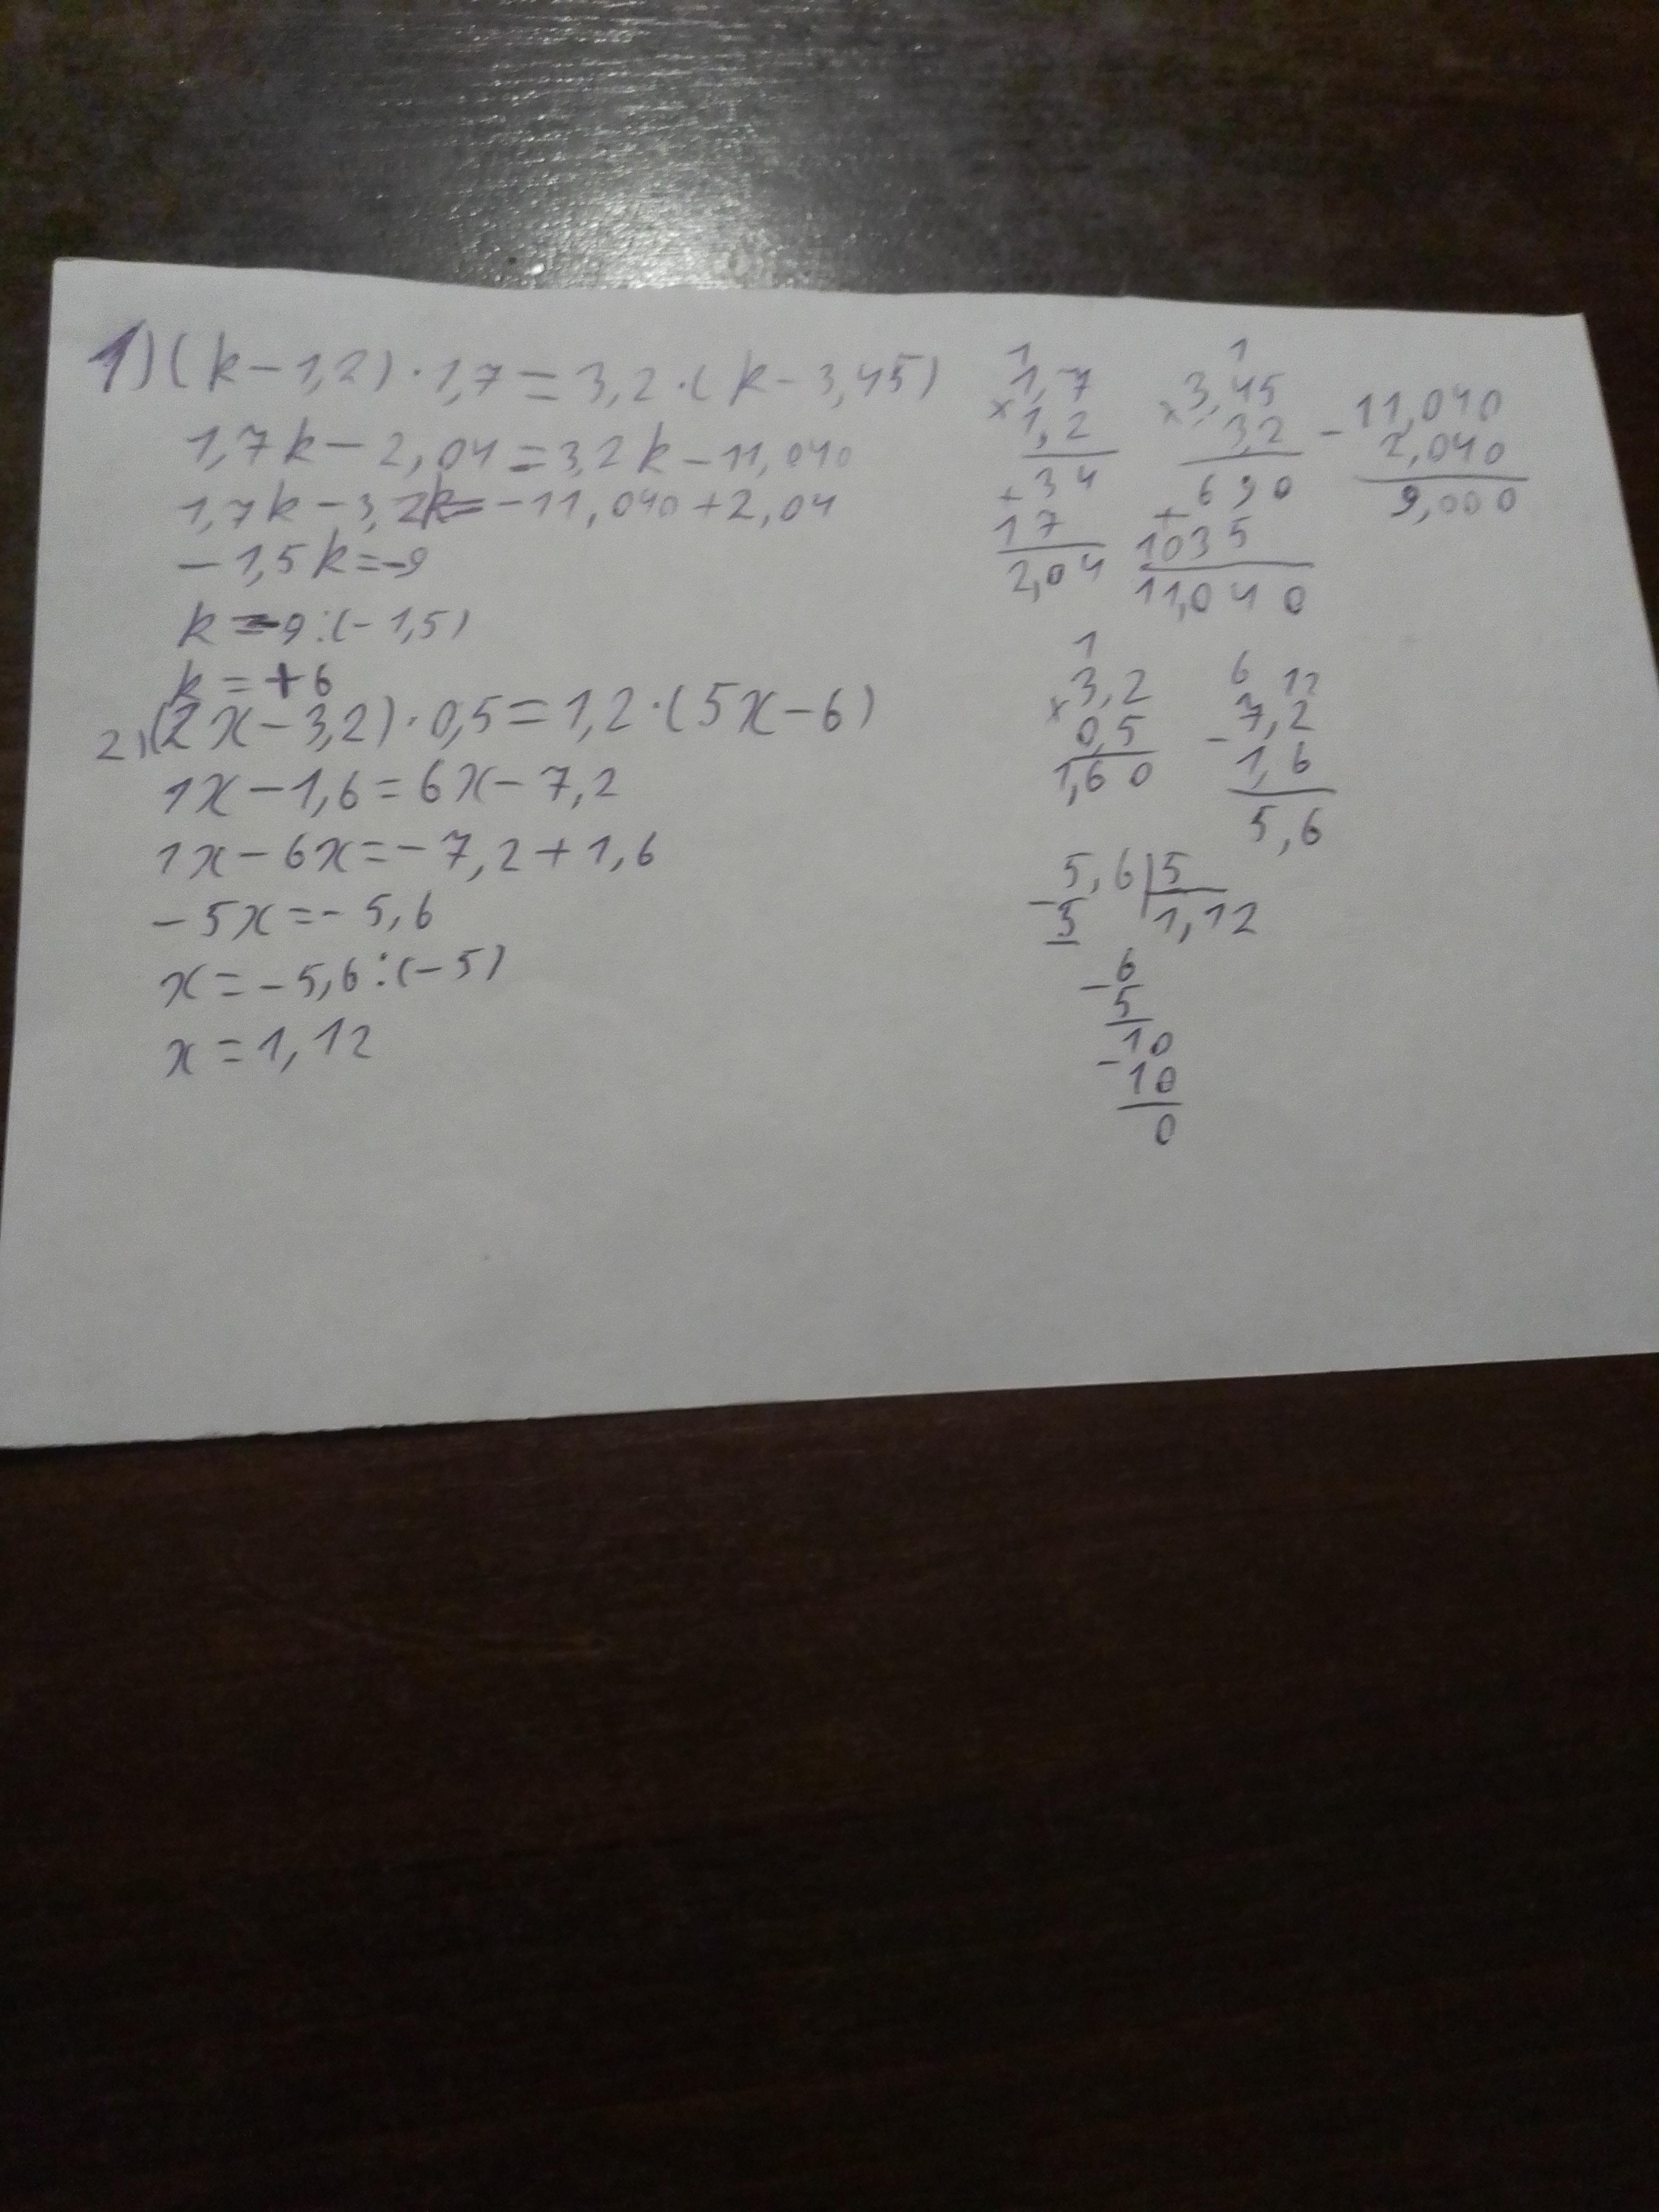 1) (k-1,2)·1,7=3,2·(k-3,45)
1,7k-2,04=3,2k-11,040
1,7k-3,2k=-11,040+2,04
-1,5k=-9
k=-9:(-1,5)
k=+6
2) (2x-3,2)·0,5=1,2·(5x-6)
1x-1,6=6x-7,2
1x-6x=-7,2+1,6
-5x=-5,6
x=-5,6:(-5)
x=1,12
1
1,7
×1,2
34
+
17
2,04
1
3,45
×3,2
690
+
1035
11,040
11,040
-
2,040
9,000
1
3,2
×
0,5
1,60
6 12
7,2
-
1,6
5,6
5,6|5
-5 1,12
-6
5
10
-
10
0